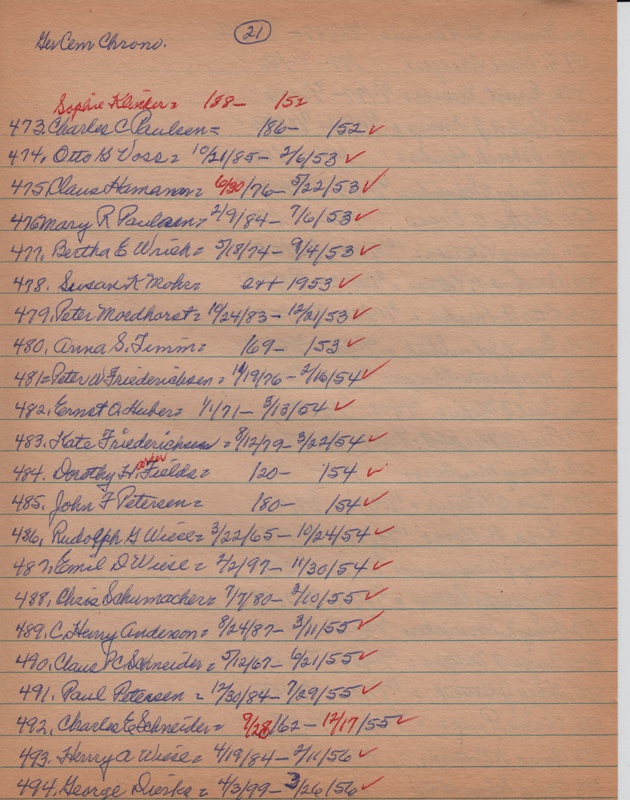 21
Ger Cem Chrono.
Sophie Klinker = /88- /52
473. Charles C Paulsen = /86- /52 ✓
474. Otto G Voss = 10/21/85- 2/6/53 ✓
475. Claus Hamann = 6/30/76- 5/22/53 ✓
476 Mary R Paulsen = 2/9/84- 7/6/53 ✓
477. Bertha E Wriek = 5/18/74- 9/4/53 ✓
478. Susan K Moher = 1953 ✓
479. Peter Mordhorst = 10/24/83- 12/21/53 ✓
480. Anna S. Timm = /69- /53 ✓
481 = Peter W Friederichsen = 11/19/76- 2/16/54 ✓
482. Ernst A Huber = 1/1/71- 3/13/54 ✓
483. Kate Friederichsen = 8/12/79- 3/22/54 ✓
484. Dorothy H. Fields = /20- /54 ✓
485. John F Petersen = /80- /54 ✓
486. Rudolph G Wiese = 3/22/65- 10/24/54 ✓
487. Emil D Wiese = 2/2/97- 11/30/54 ✓
488. Chris Schumacher = 7/7/80- 2/10/55 ✓
489. C. Henry Anderson = 8/24/87- 3/11/55 ✓
490. Claus C Schneider = 5/12/67- 6/21/55 ✓
491. Paul Petersen = 12/30/84- 7/29/55 ✓
492. Charles E Schneider = 9/28/62- 12/17/55 ✓
493. Henry A Wiese = 4/19/84- 2/11/56 ✓
494. George Dieske = 4/3/99- 3/26/56 ✓